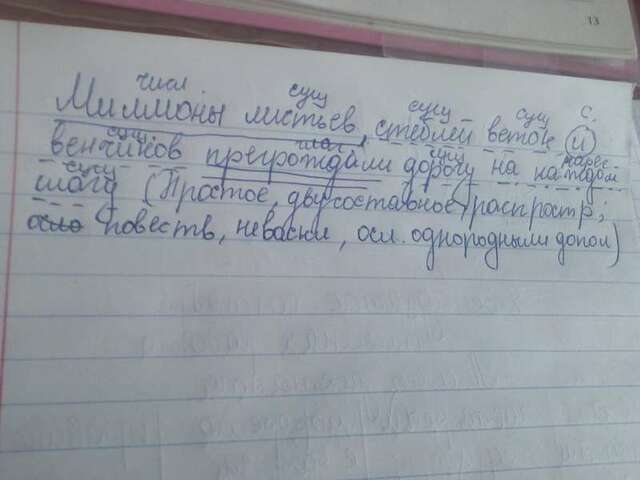 13
числ сущ сущ сущ с.
Миллионы листьев, стеблей веток и
сущ глаг сущ нареч
венчиков прегрождали дорогу на каждом
сущ
шагу (Простое, двусоставное, распростр,
осло повеств, невоскл, осл. однородными допол)